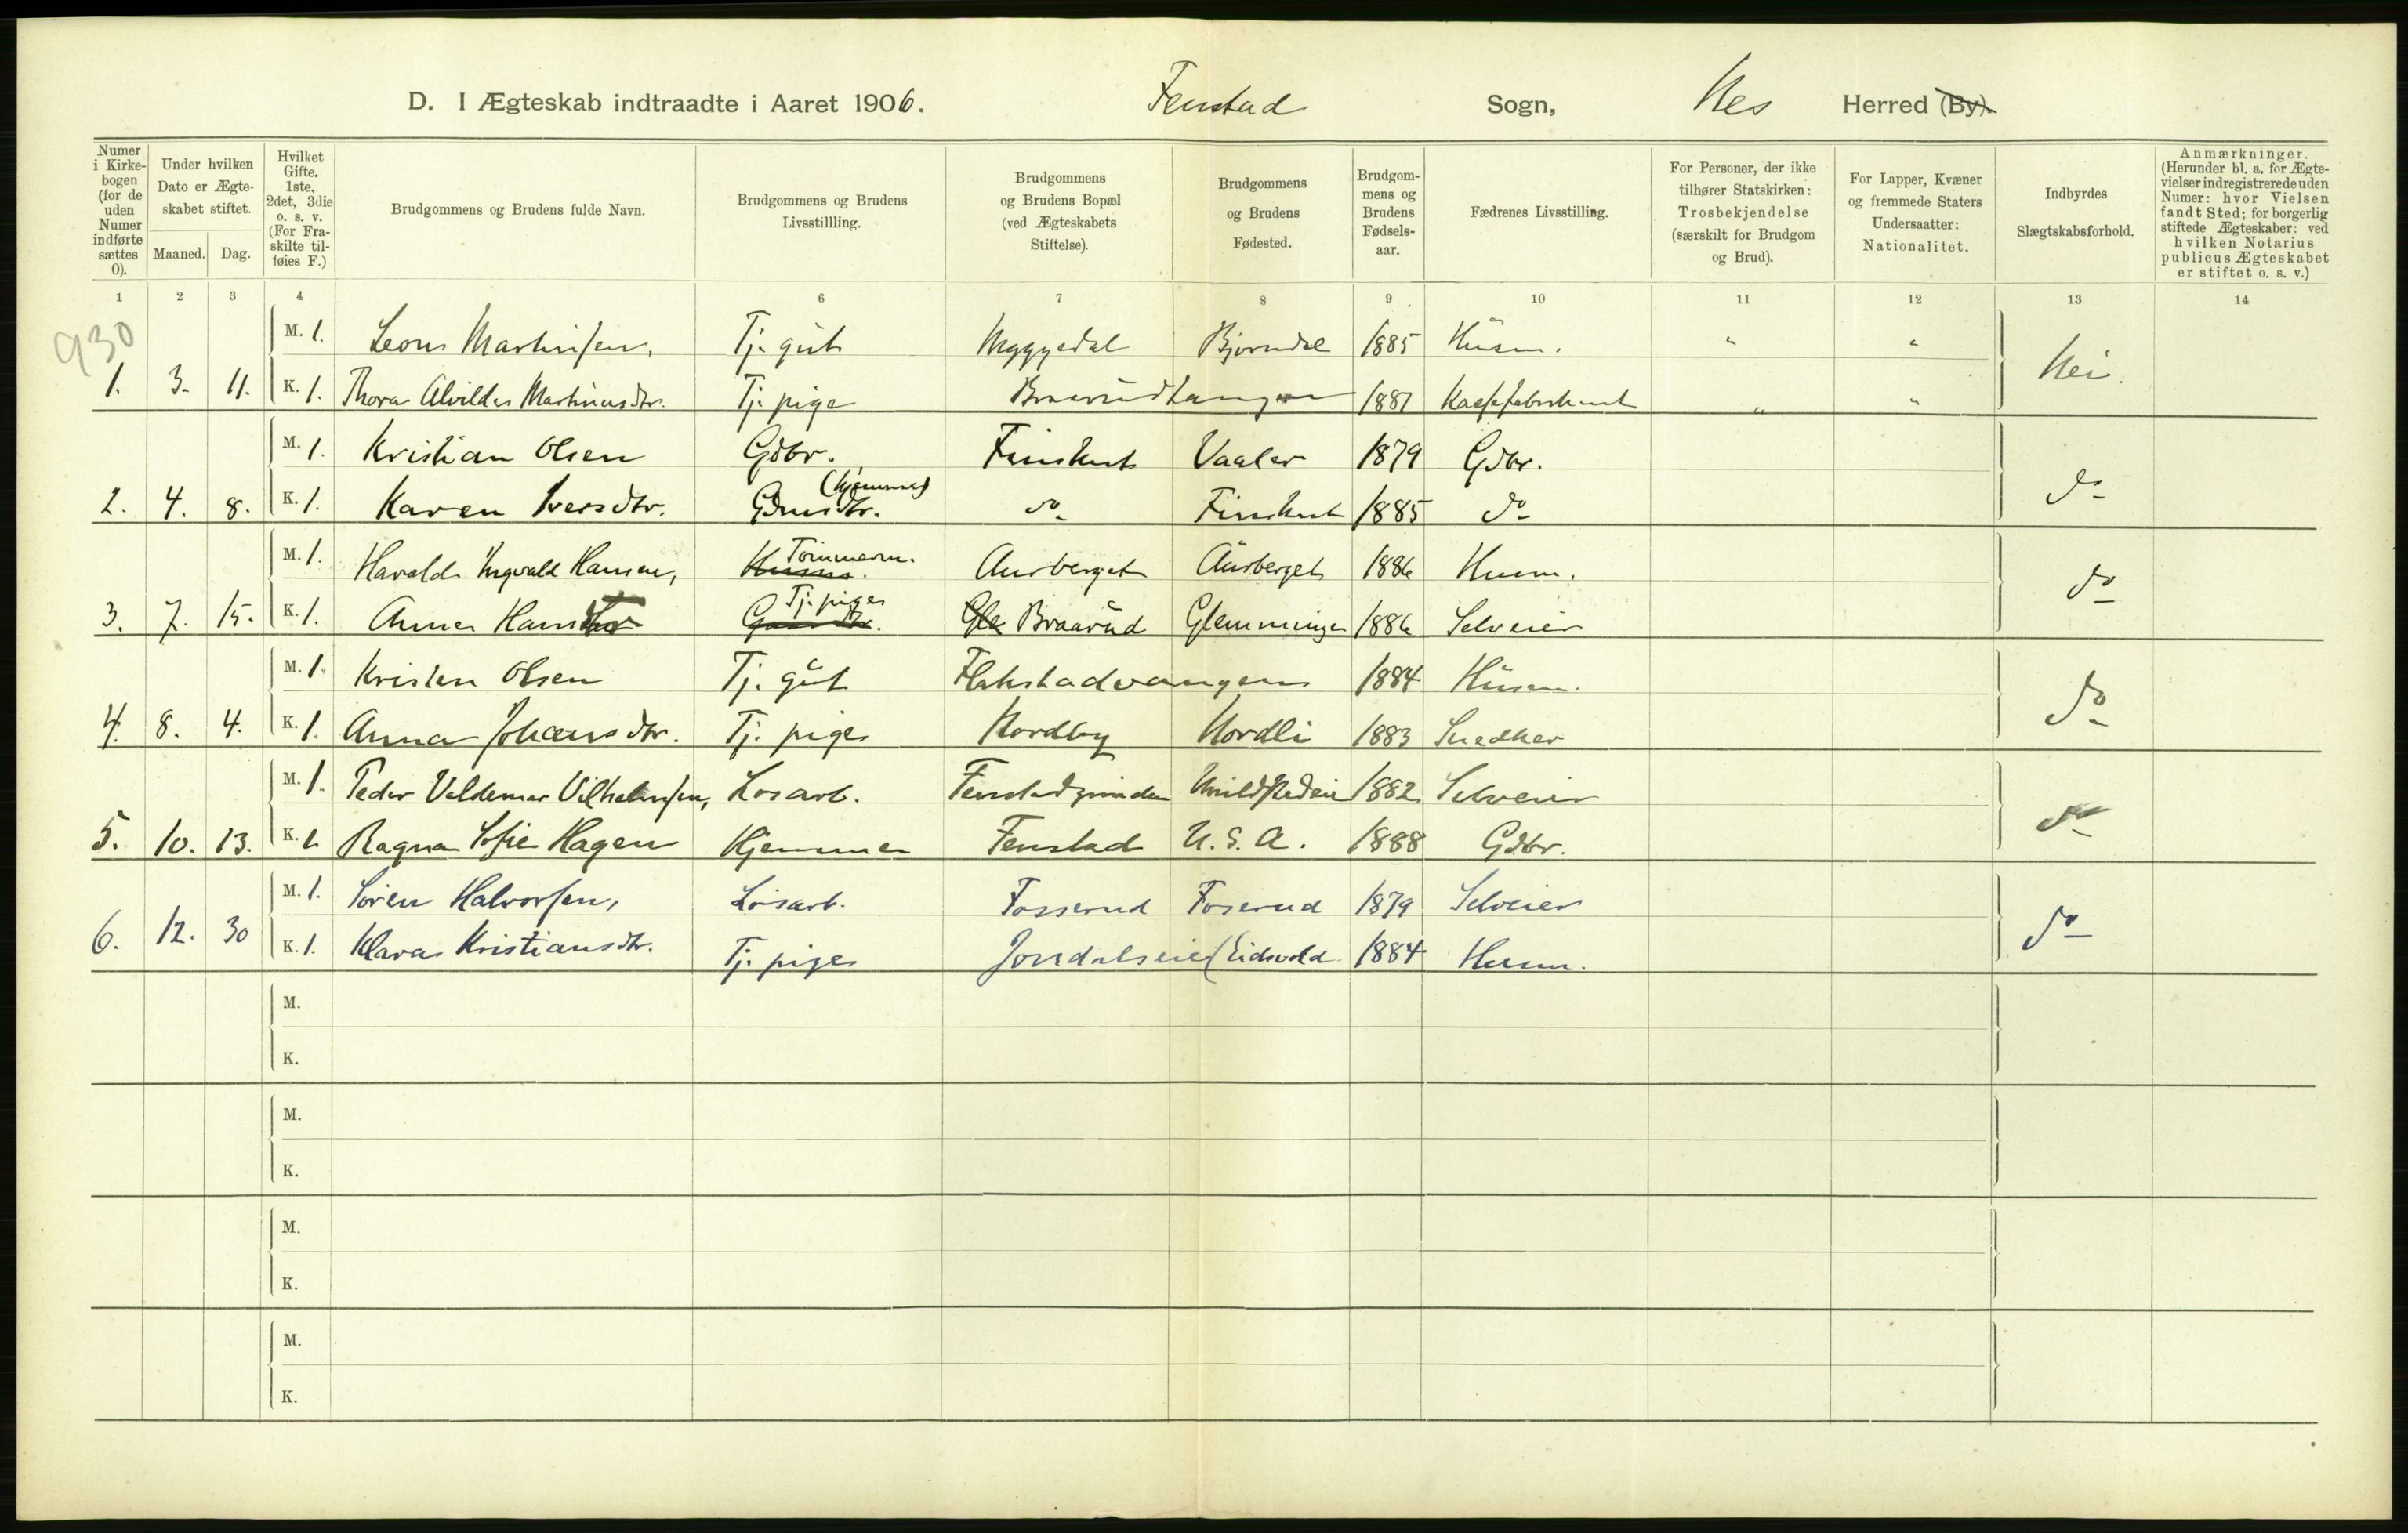 D. I Ægteskab indtraadte i Aaret 1906. Fenstad Sogn, Nes Herred (By).
Numer i Kirkebogen (for de uden Numer indførte sættes 0).
Under hvilken Dato er Ægteskabet stiftet.
Maaned. Dag.
Hvilket Gifte. 1ste, 2det, 3die o. s. v. (For Fraskilte tilføies F.)
Brudgommens og Brudens fulde Navn.
Brudgommens og Brudens Livsstillling.
Brudgommens og Brudens Bopæl (ved Ægteskabets Stiftelse).
Brudgommens og Brudens Fødested.
Brudgommens og Brudens Fødselsaar.
Fædrenes Livsstilling.
For Personer, der ikke tilhører Statskirken: Trosbekjendelse (særskilt for Brudgom og Brud).
For Lapper, Kvæner og fremmede Staters Undersaatter: Nationalitet.
Indbyrdes Slægtskabsforhold.
Anmærkninger. (Herunder bl. a. for Ægtevielser indregistrerede uden Numer: hvor Vielsen fandt Sted; for borgerlig stiftede Ægteskaber: ved hvilken Notarius publicus Ægteskabet er stiftet o. s. v.)
1 2 3 4 6 7 8 9 10 11 12 13 14
930
M. 1. Leon Martinsen, Tj. gut Myggedal Bjørndal 1885 Husm. " "
1. 3. 11. K. 1. Thora Alvilde Martinusdtr. Tj. pige 1887 " " Nei.
M. 1. Kristian Olsen Gdbr. Finshut Vaaler 1879 Gdbr.
(hjemme)
2. 4. 8. K. 1. Karen Iversdtr. Gdmsdtr. do Finshut 1885 do do
Tømmerm.
M. 1. Harald Ingvald Hansen, Husm. Aurberget Aurberget 1886 Husm.
Tj. pige
3. 7. 15. K. 1. Anna Hansdtr Gle Braarud Glemminge 1886 Selveier do
M. 1. Kristen Olsen Tj. gut Flakstadvangen 1884 Husm.
4. 8. 4. K. 1. Anna Johansdtr. Tj. pige Nordby Nordli 1883 Snedker do
M. 1. Peder Valdemar Vilhelmsen, Løsarb. Fenstadgrinden 1882 Selveier
5. 10. 13. K. 1. Ragna Sofie Hagen Hjemme Fenstad U. S. A. 1888 Gdbr. do
M. 1. Søren Halvorsen, Løsarb. Fosserud Foserud 1879 Selveier
6. 12. 30 K. 1. Klara Kristiansdtr. Tj. pige Jondalseie (Eidsvold 1884 Husm. do
M.
K.
M.
K.
M.
K.
M.
K.